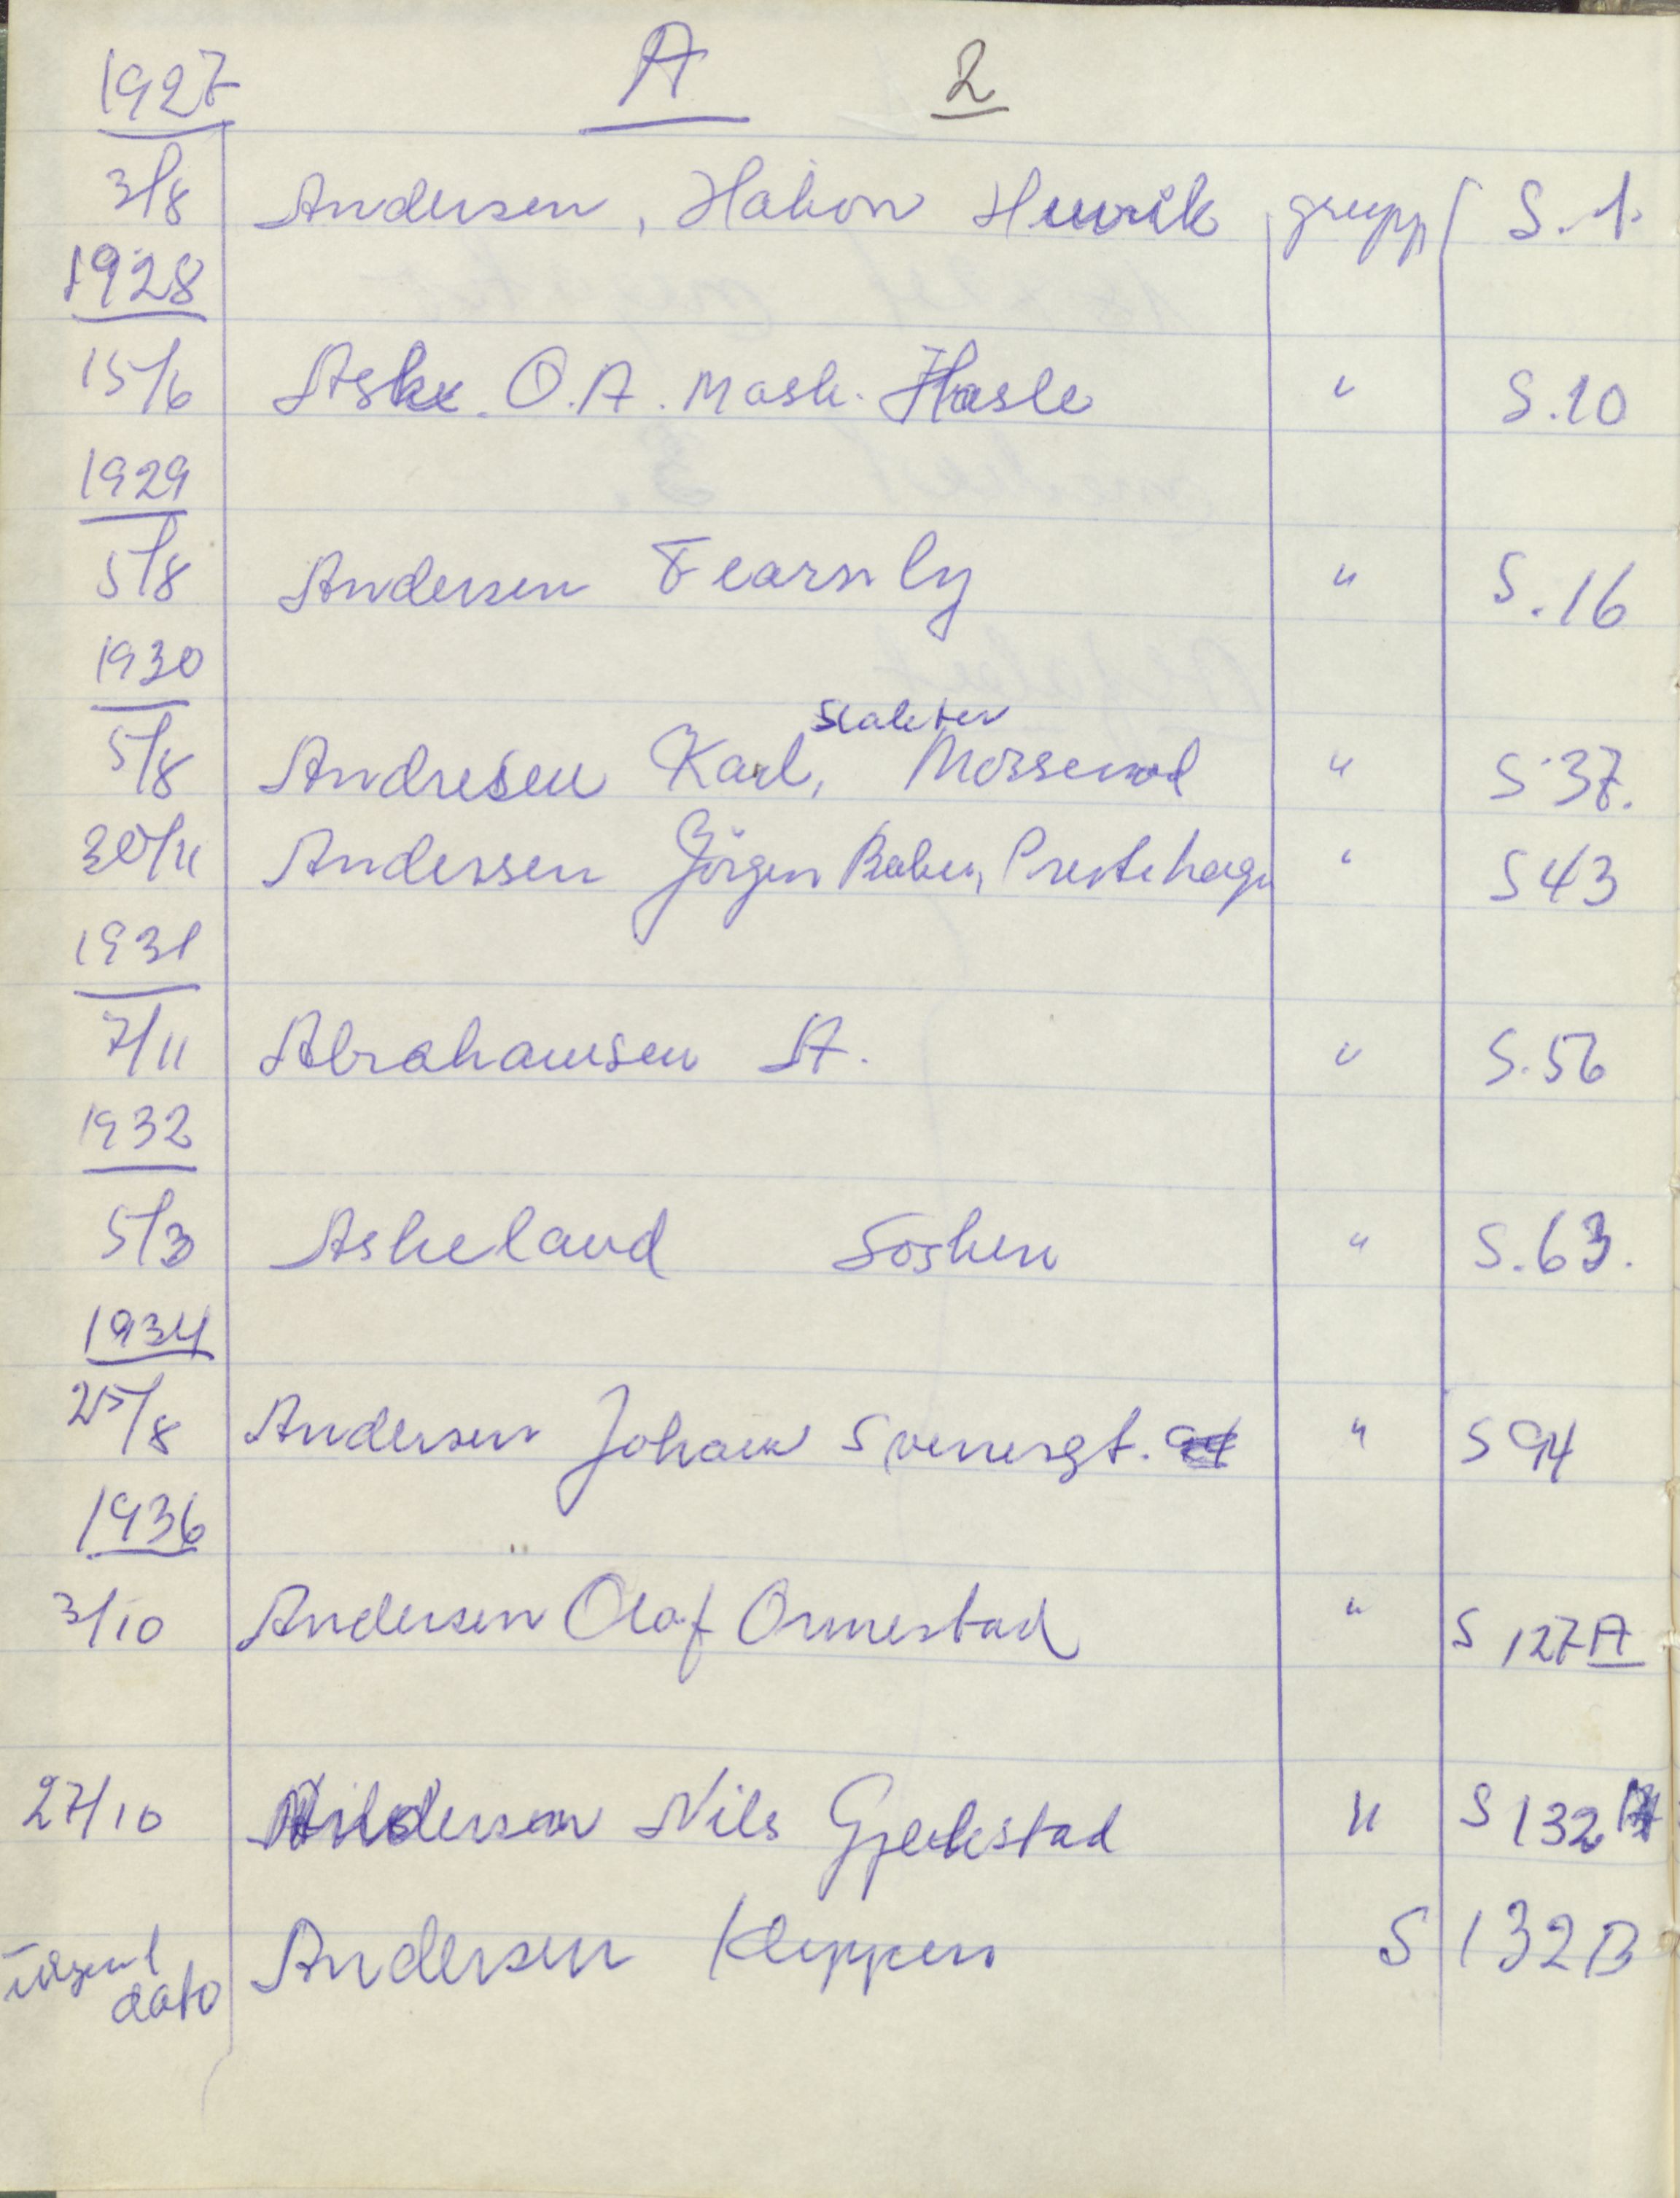 1927 A 2
3/8 Andersen, Håkon Henrik grupp S. 1.
1928
15/6 Aske. O.A. Mask. Hasle " S.10
1929
5/8 Andersen Fearnly " S.16
1930
slakter
5/8 Andresen Karl, " S 37.
30/11 Anderssen Jörgen Baker, Prestehagen " S 43
1931
7/11 Abrahamsen A. " S.56
1932
5/3 Askeland " S.63.
1934
25/8 Andersen Johan Svennsgt. " S 94
1936
3/10 Andersen Olaf Ormestad " S 127A
27/10 Andersen Nils Gjekstad " S 132 A
dato Andersen Kleppen S 132B